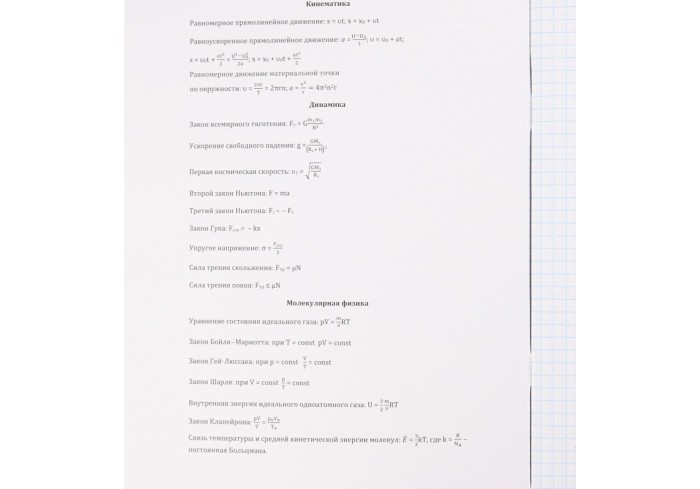 Кинематика
Равномерное прямолинейное движение: s = υt; x = x₀ + υt
Равноускоренное прямолинейное движение: a = (υ−υ₀)/t; υ = υ₀ + at;
s = υ₀t + at²/2 = (υ²−υ₀²)/2a; x = x₀ + υ₀t + at²/2
Равномерное движение материальной точки
по окружности: υ = 2πr/T = 2πrn; a = υ²/r = 4π²n²r
Динамика
Закон всемирного тяготения: F₁ = G m₁m₂/R²
Ускорение свободного падения: g = GM₃/(R₃ + H)²
Первая космическая скорость: υ₁ = √(GM₃/R₃)
Второй закон Ньютона: F = ma
Третий закон Ньютона: F₁ = − F₂
Закон Гука: Fупр = − kx
Упругое напряжение: σ = Fупр/
Сила трения скольжения: Fтр = μN
Сила трения покоя: Fтр ≤ μN
Молекулярная физика
Уравнение состояния идеального газа: pV = m/ RT
Закон Бойля - Мариотта: при T = const pV = const
Закон Гей-Люссака: при p = const V/T = const
Закон Шарля: при V = const p/T = const
Внутренняя энергия идеального одноатомного газа: U = 3/2 m/ RT
Закон Клапейрона: pV/T = p₀V₀/T₀
Связь температуры и средней кинетической энергии молекул: E̅ = 3/2 kT, где k = R/Nᴀ –
постоянная Больцмана.